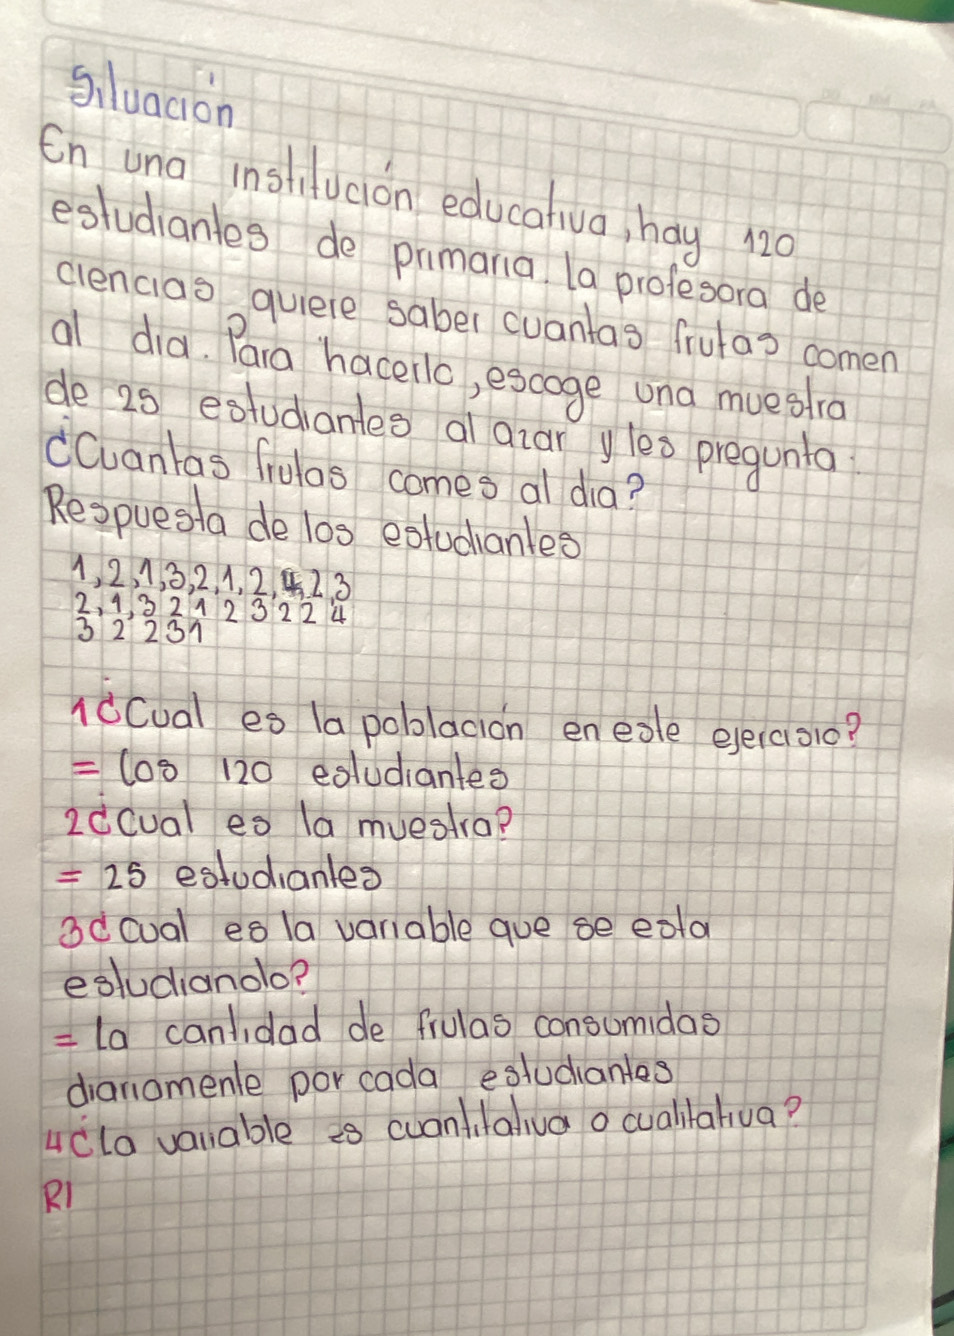 Situación
En una institución educativa, hay 120
estudiantes de primaria. la profesora de
ciencias quiere saber cuantas frutas comen
al dia. Para hacerlo, escoge una muestra
de 25 estudiantes al azar y les pregunta:
¿Cuantas frutas comes al dia?
Respuesta de los estudiantes
1,2,1,3,2,1,2,4,2,3
2,1,3 2 1 2 3 2 2 4
3 2 2 3 1
1¿Cual es la población en este ejercisio?
= los 120 estudiantes
2¿Cual es la muestra?
= 25 estudiantes
3¿Cual es la variable que se esta
estudiando?
= la cantidad de frutas consumidas
diariamente por cada estudiantes
4¿La variable es cuantitativa o cualitativa?
R/